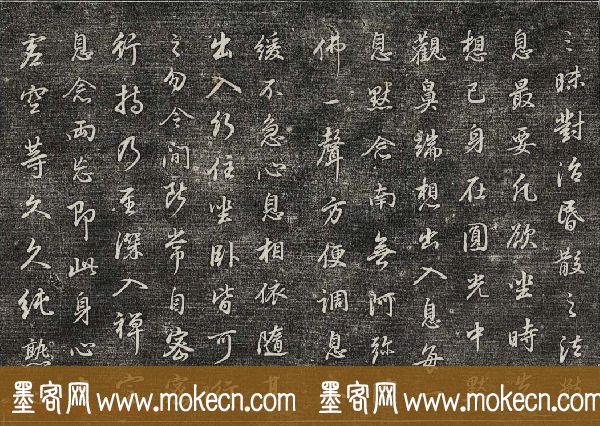 三昧對治昏散之法數
息最要凡欲坐時先
想己身在圓光中默
觀鼻端想出入息每
息默念南無阿彌
佛一聲方便調息
緩不急心息相依隨其
出入行住坐臥皆可行
之勿令間斷常自密密
行持乃至深入禪定
息念兩忘即此身心
虛空等久久純熟
墨客网 www.mokecn.com 墨客网 www.mokecn.com